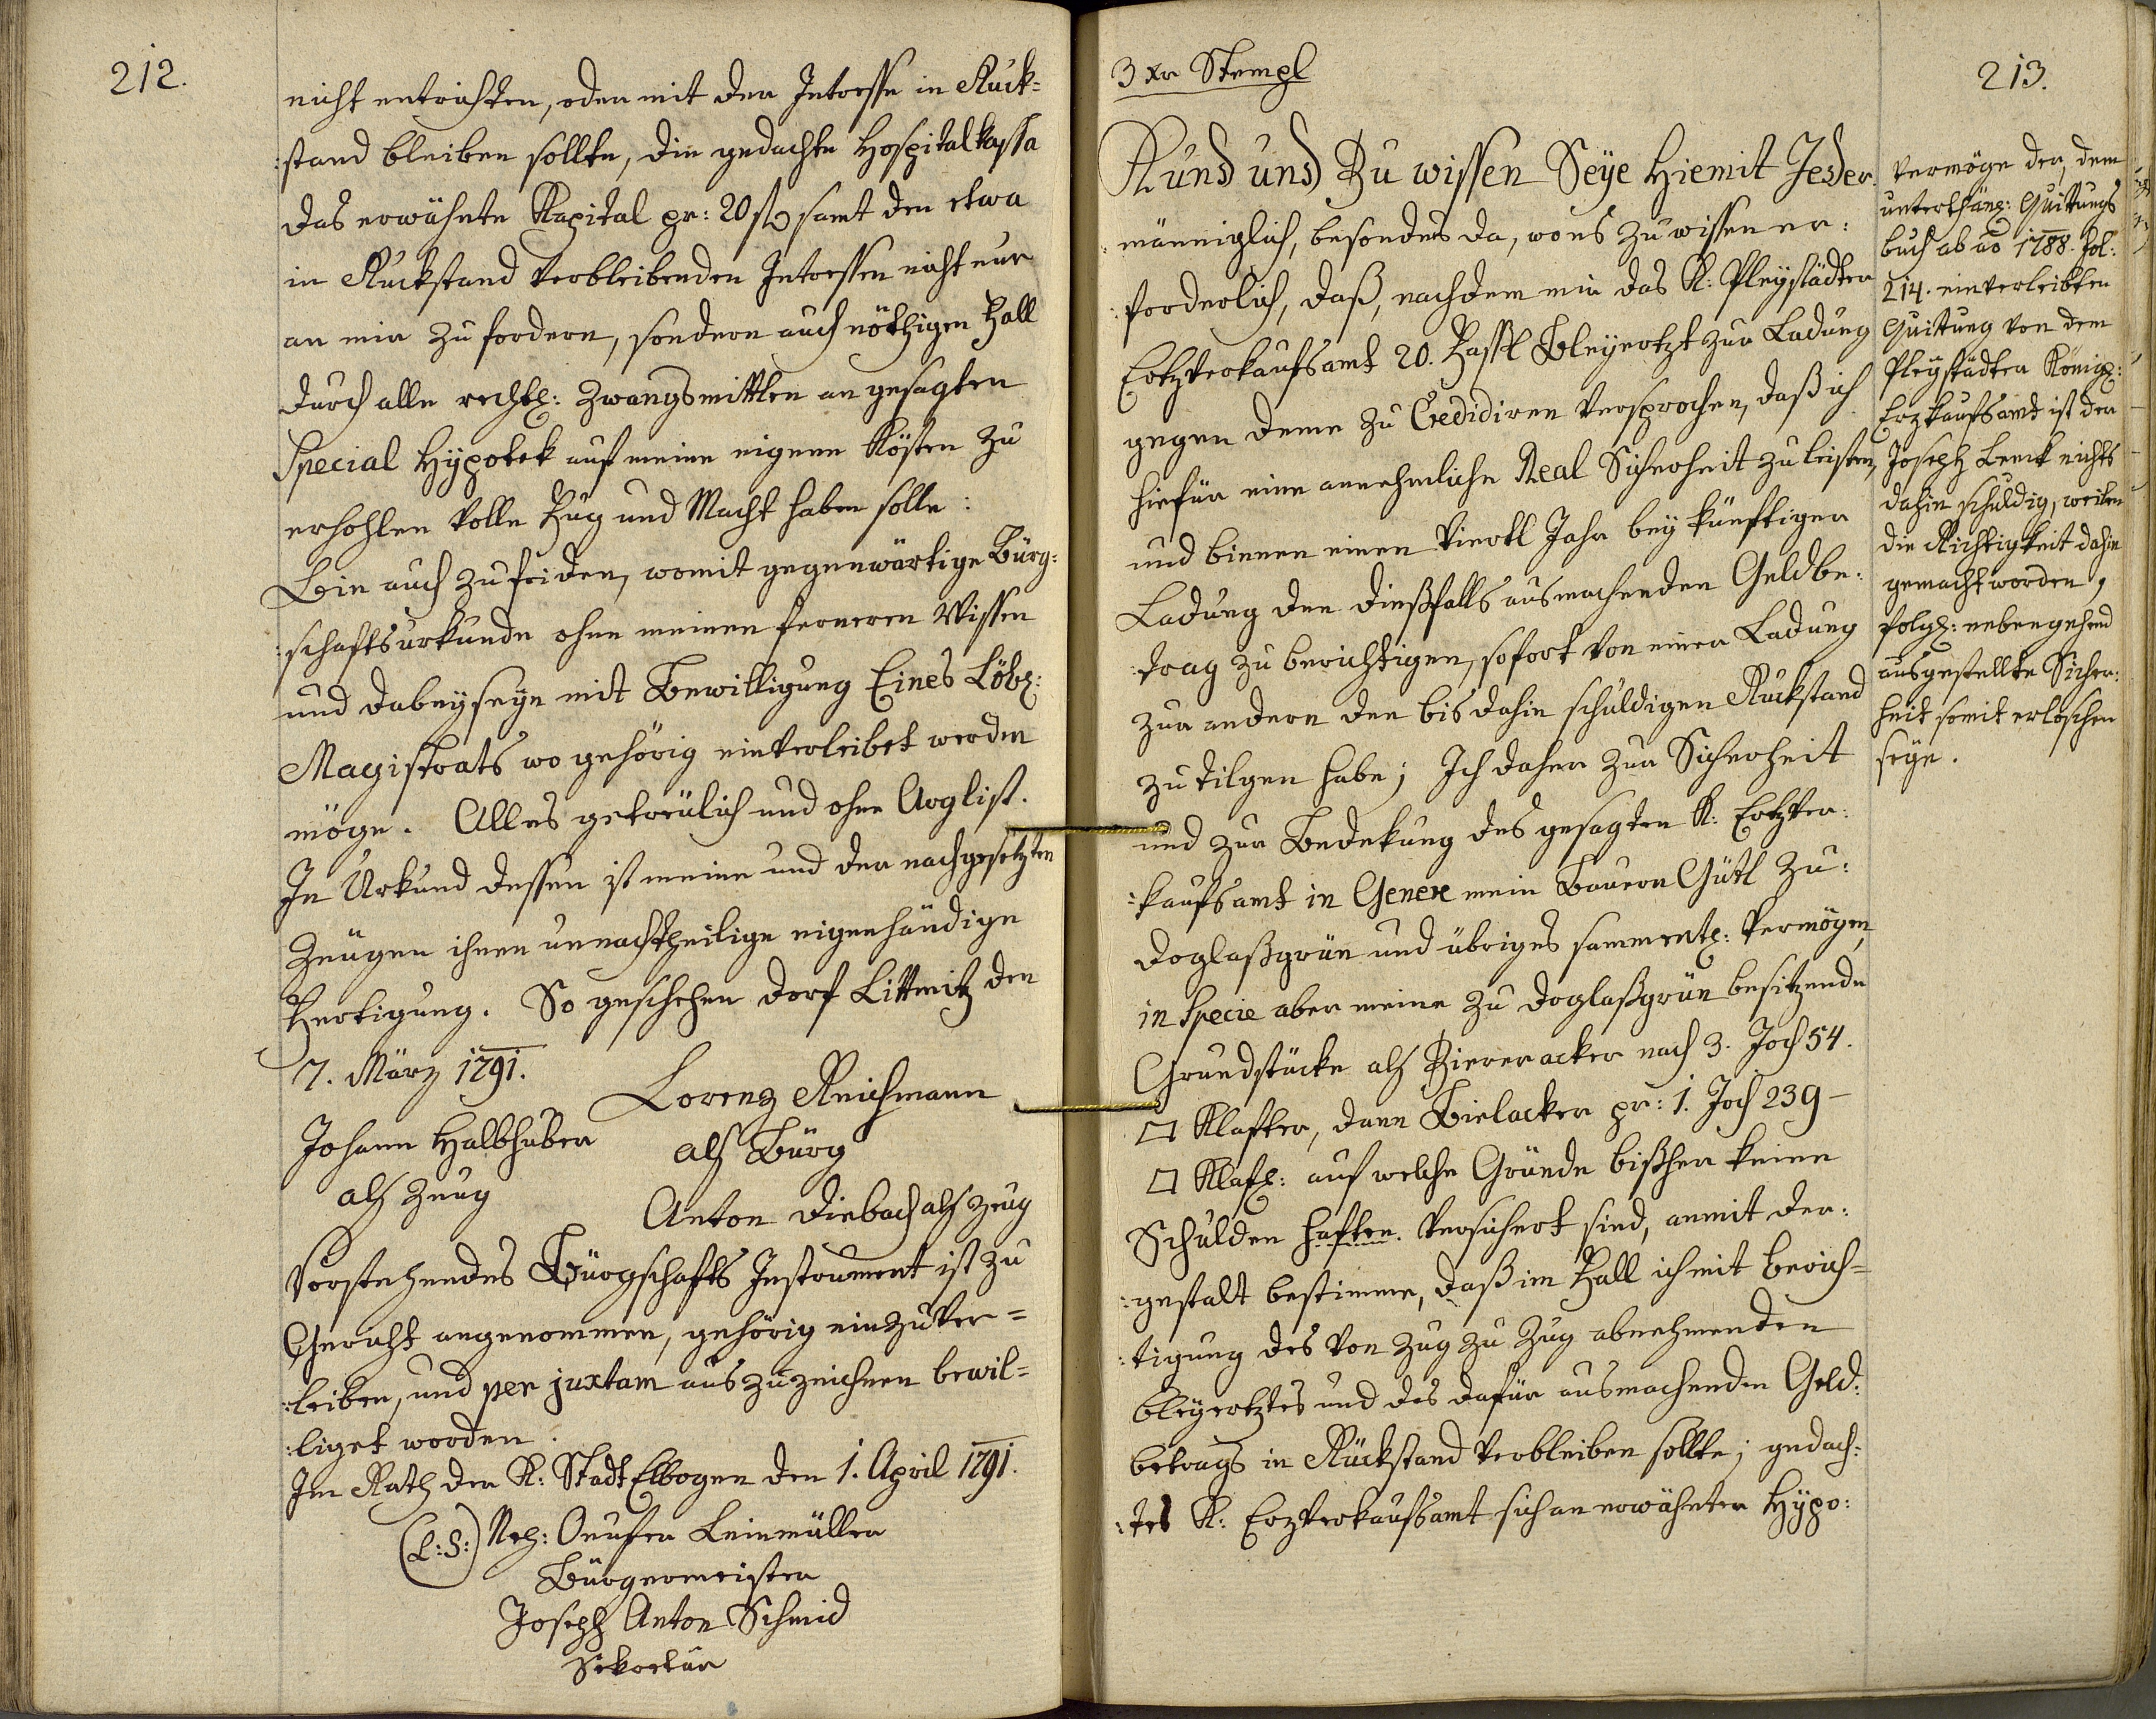 212.
nicht entrichten, oder mit der Intresse in Ruck=
:stand bleiben sollte, die gedachte Hospitalkassa
das erwähnte Kapital pr: 20 f samt den etwa
in Ruckstand verbleibenden Intressen nicht nur
an mir zu fordern, sondern auch nöthigen Fall
durch alle rechtl: Zwangsmittlen an gesagten
Special Hÿpotek auf meine eigene Kösten zu
erhohlen volle Fug und Macht haben solle:
Bin auch zufriden, womit gegenwärtige Bürg:
:schaftsurkunde ohne meinen ferneren Wissen
und dabeyseyn mit Bewilligung Eines Löbl:
Magistrats wo gehörig einverleibet werden
möge. Alles getreülich und ohne Arglist.
In Urkund dessen ist meine und der nachgesetzten
Zeügen ihnen unnachtheilige eigenhändige
Fertigung. So geschehen Dorf Littmitz den
7. März 1791.
Lorenz Reichmann
als Bürg
Johann Halbhuber
als Zeug
Anton Diebach als Zeug
Vorstehendes Bürgschafts Instrument ist zu
Gericht angenommen, gehörig einzuver=
:leiben, und per juxtam auszuzeichnen bewil=
:liget worden.
Im Rath der K: Stadt Elbogen den 1. April 1791.
(L:S:) Onufer Leinmüller
Bürgermeister
Joseph Anton Schmid
Sekretär
3 xr Stempl
213.
Kund und Zu wissen Seÿe Hiemit Jeder
männiglich, besonders da, wo es zu wissen er:
:forderlich, daß, nachdem mir das K: Pleystädter
Ertzverkaufsamt 20. Fassl Bleyertzt zur Ladung
gegen deme zu Credidiren versprochen, daß ich
hiefür eine annehmliche Real Sicherheit zu leisten,
und binnen einen Viertl Jahr bey künftiger
Ladung den dießfalls ausmachenden Geldbe:
:trag zu berichtigen, sofort von einer Ladung
zur andern den bis dahin schuldigen Ruckstand
zu tilgen habe; Ich daher zur Sicherheit
und zur Bedekung des gesagten K: Ertzver:
:kaufsamt in Genere mein Bauern Gütl zu:
Doglaßgrün und übriges sammentl: Vermögen,
in Specie aber meine zu Doglaßgrün besitzende
Grundstücke als Ziereracker nach 3. Joch 54.
□ Klafter, dann Bielacker pr: 1. Joch 239 –
□ Klaft: auf welche Gründe bißher keine
Schulden haften. Versichert sind, anmit der:
:gestalt bestimme, daß im Fall ich mit berich=
:tigung des von Zug zu Zug abnehmenden
bleyertztes und des dafür ausmachenden Geld:
betrags in Rückstand verbleiben sollte; gedach:
:tes K: Erzverkaufsamt sich an erwähnter Hÿpo:
Vermöge der, dem
unterthäng: Quittungs
buch ab ao 1788. fol:
214. einverleibten
Quittung von dem
Pleystädter Königl:
Erzkaufsamt ist der
Joseph Lenck nichts
dahin schuldig, weilen
die Richtigkeit dahin
gemacht worden,
folgl: nebengehend
ausgestellte Sicher:
heit somit erloschen
seye.